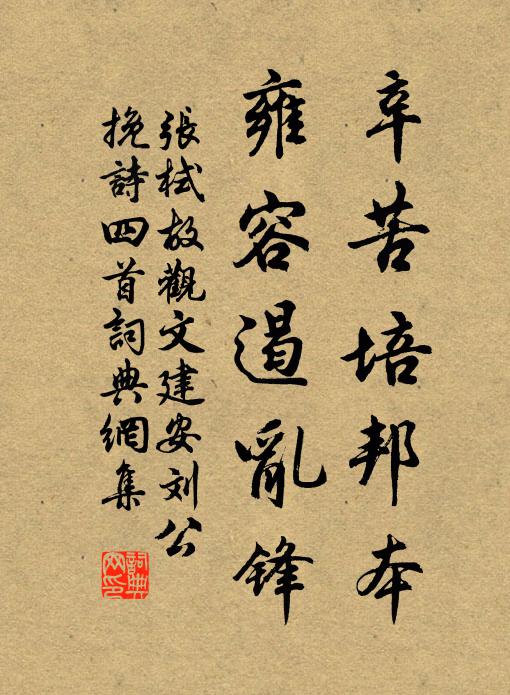 辛苦培邦本
雍容遏亂锋
張栻故觀文建安刘公
挽詩四首詞典網集
詞典
网印